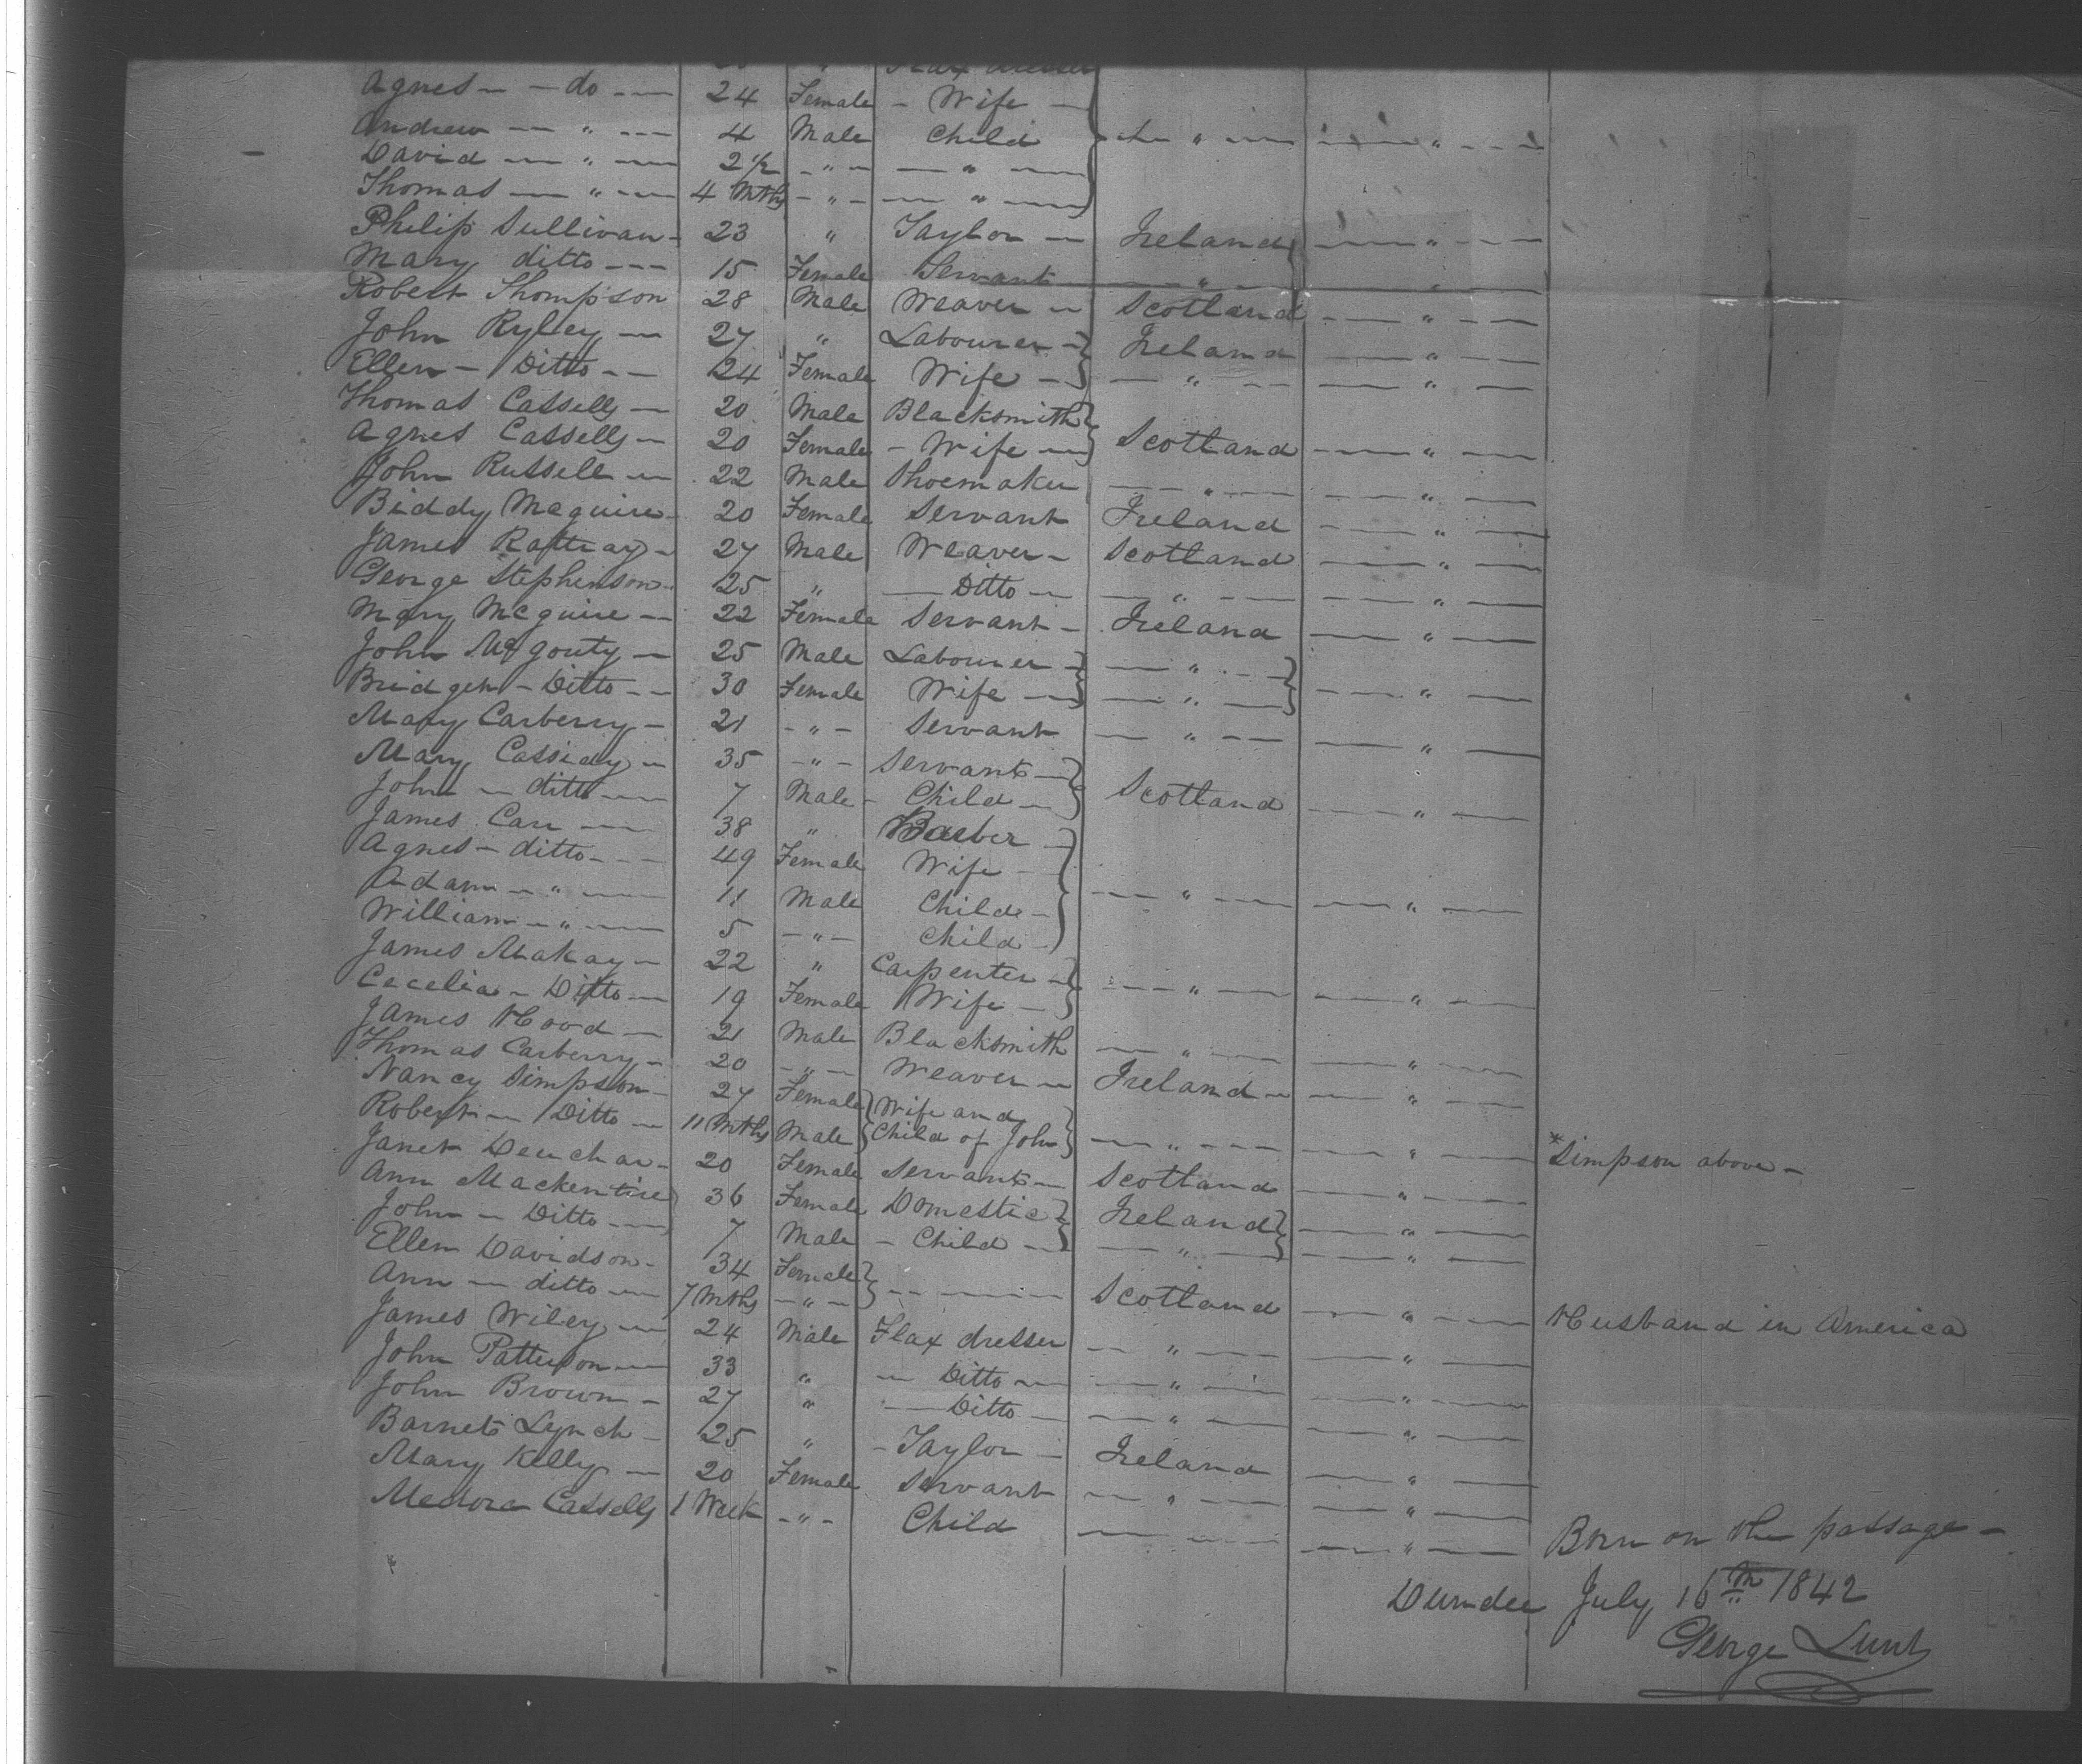 Flax dresser
Agnes — do — 24 Female — Wife —
Andrew — " — 4 Male Child — " — — " —
David — " — 2 1/2 — " — — " —
Thomas — " — 4 Mths — " — — " —
Philip Sullivan — 23 " Taylor — Ireland — " —
Mary ditto — 15 Female Servant — " — — " —
Robert Thompson 28 Male Weaver — Scotland — " —
John Ryley — 27 " Labourer — Ireland — " —
Ellen — Ditto — 24 Female Wife — — " — — " —
Thomas Cassells — 20 Male Blacksmith
Agnes Cassells — 20 Female — Wife — Scotland — " —
John Russell — 22 Male Shoemaker — " — — " —
Biddy Mcguire — 20 Female Servant Ireland — " —
James Rattray — 27 Male Weaver — Scotland — " —
George Stephenson — 25 " — Ditto — — " — — " —
Mary Mcguire — 22 Female Servant — Ireland — " —
John — 25 Male Labourer — — " —
Bridget — Ditto — 30 Female Wife — — " — — " —
Mary Carberry — 21 — " — Servant — " — — " —
Mary Cassiday — 35 — " — Servant —
John — ditto — 7 Male — Child — Scotland — " —
James Carr — 38 " Barber —
Agnes — ditto — 49 Female Wife —
Adam — " — 11 Male Child — — " — — " —
William — " — 5 — " — Child —
James Makay — 22 " Carpenter —
Cecelia — Ditto — 19 Female Wife — — " — — " —
James Hood — 21 Male Blacksmith — " — — " —
Thomas Carberry — 20 — " — Weaver — Ireland — — " —
Nancy Simpson — 27 Female Wife and
Robert — Ditto — 11 Mths Male Child of John — " — — " — *Simpson above —
Janet Deuchar — 20 Female Servant — Scotland — " —
Ann Mackentire 36 Female Domestic Ireland — " —
John — Ditto — 7 Male — Child — — " — — " —
Ellen Davidson — 34 Female
Ann — ditto — 7 Mths — " — — Scotland — " — Husband in America
James Wiley — 24 Male Flax dresser — " — — " —
John Patterson — 33 " — Ditto — — " — — " —
John Brown — 27 " — Ditto — — " — — " —
Barnet Lynch — 25 " — Taylor — Ireland — " —
Mary Kelly — 20 Female Servant — " — — " —
Medora Cassells 1 Week — " — Child — — " — Born on the passage —
Dundee July 16th 1842
George Lunt